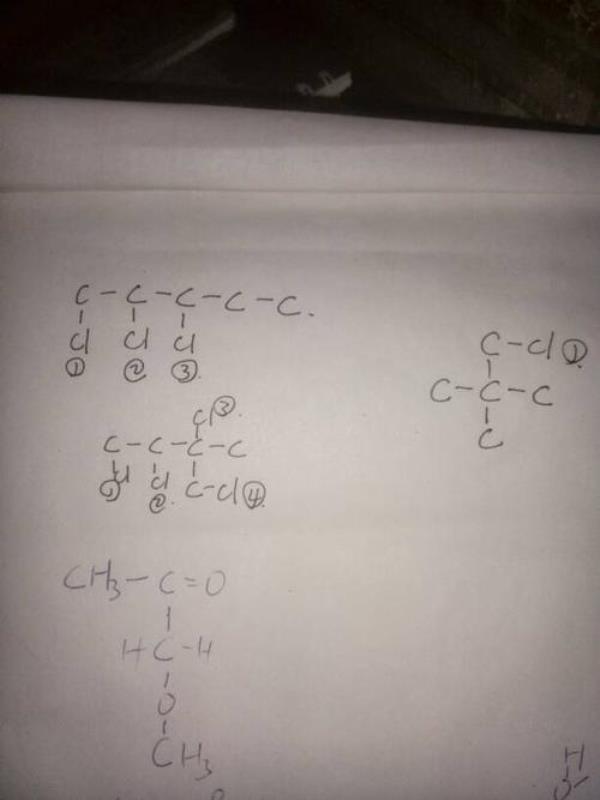 C-C-C-C-C.
Cl Cl Cl
① ② ③.
C-Cl①.
C-C-C
C
Cl③.
C-C-C-C
Cl Cl C-Cl④.
① ②.
CH₃-C=O
H C-H
O
CH₃
H